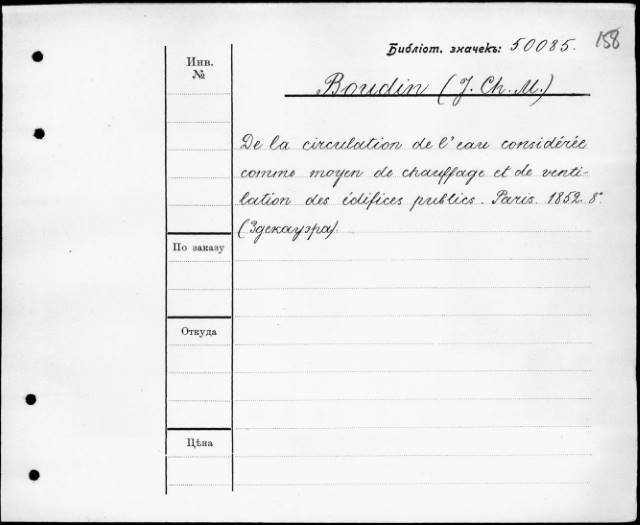 Библіот. значекъ: 50085. 158
Инв.
№
Boudin (J. Ch. M.)
De la circulation de l'eau considérée
comme moyen de chauffage et de venti-
lation des édifices publics. Paris. 1852. 8°
(Здекауэра).
По заказу
Откуда
Цѣна